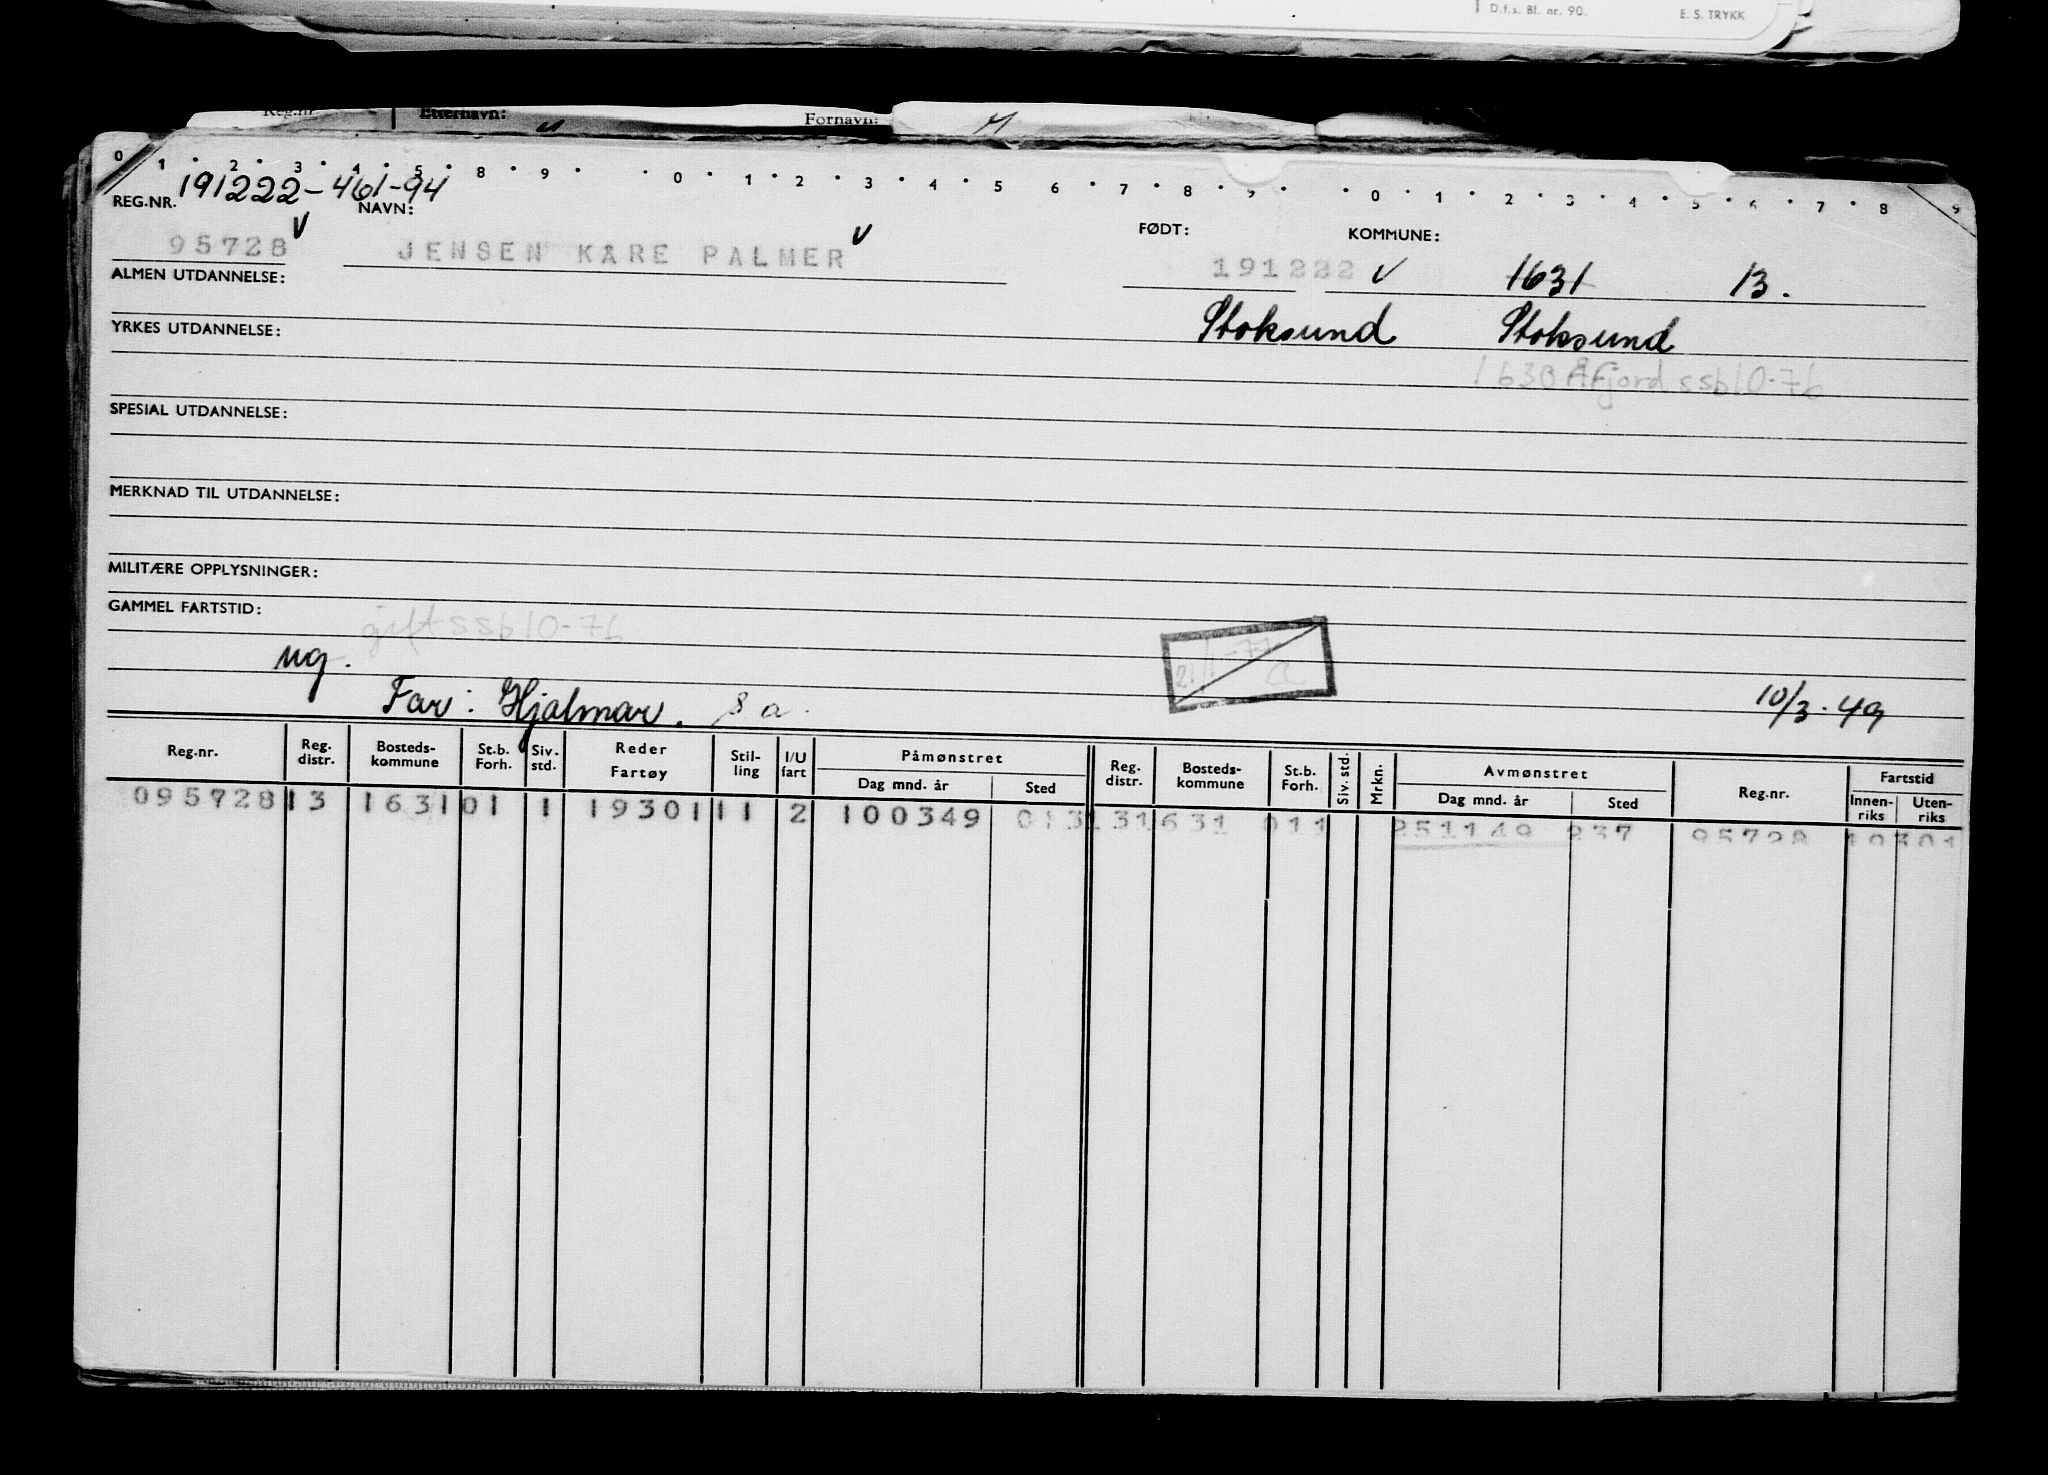 D.f.s. Bl. nr. 90. E. S. TRYKK
Reg.nr. Etternavn: Fornavn:
0 1 2 3 4 5 8 9 0 1 2 3 4 5 6 7 8 9 0 1 2 3 4 5 6 7 8 9
191222-461-94
REG.NR. NAVN: FØDT: KOMMUNE:
95728 V JENSEN KÅRE PALMER V 191222 V 1631 13.
ALMEN UTDANNELSE:
Stoksund Stoksund
YRKES UTDANNELSE:
1630 Åfjord ssb10-76
SPESIAL UTDANNELSE:
MERKNAD TIL UTDANNELSE:
MILITÆRE OPPLYSNINGER:
GAMMEL FARTSTID:
gift ssb10-76
ug. 21/1-77
Far: Hjalmar. 10/3.49
Reg.nr. Reg. distr. Bosteds-kommune St.b. Forh. Siv. std. Reder Fartøy Stil-ling I/U fart Påmønstret Dag mnd. år Sted Reg. distr. Bosteds-kommune St.b. Forh. Siv. std. Mrkn. Avmønstret Dag mnd. år Sted Reg.nr. Fartstid Innen-riks Uten-riks
095728 13 1631 01 1 19301 11 2 100349 013 13 1631 011 251149 237 95728 19301